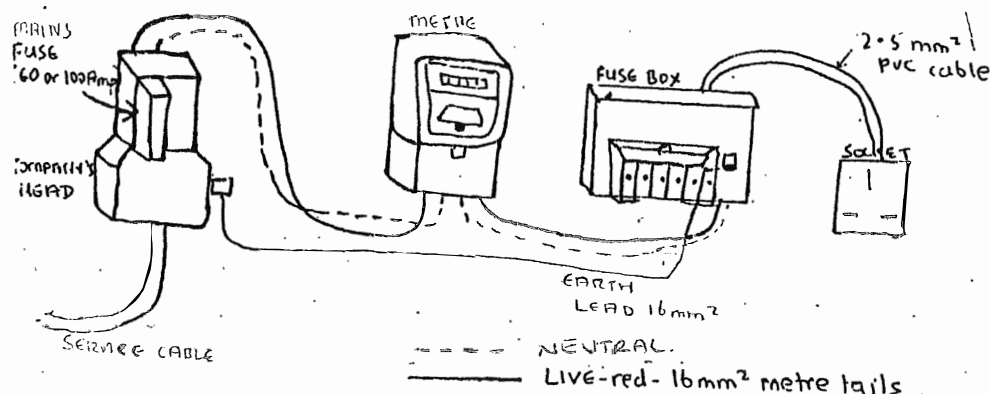 MAINS
FUSE
60 or 100Amp
COMPANY'S
HEAD
SERVICE CABLE
METRE
FUSE BOX
2.5 mm²
PVC cable
SOCKET
EARTH
LEAD 16mm²
NEUTRAL.
LIVE-red-16mm² metre tails